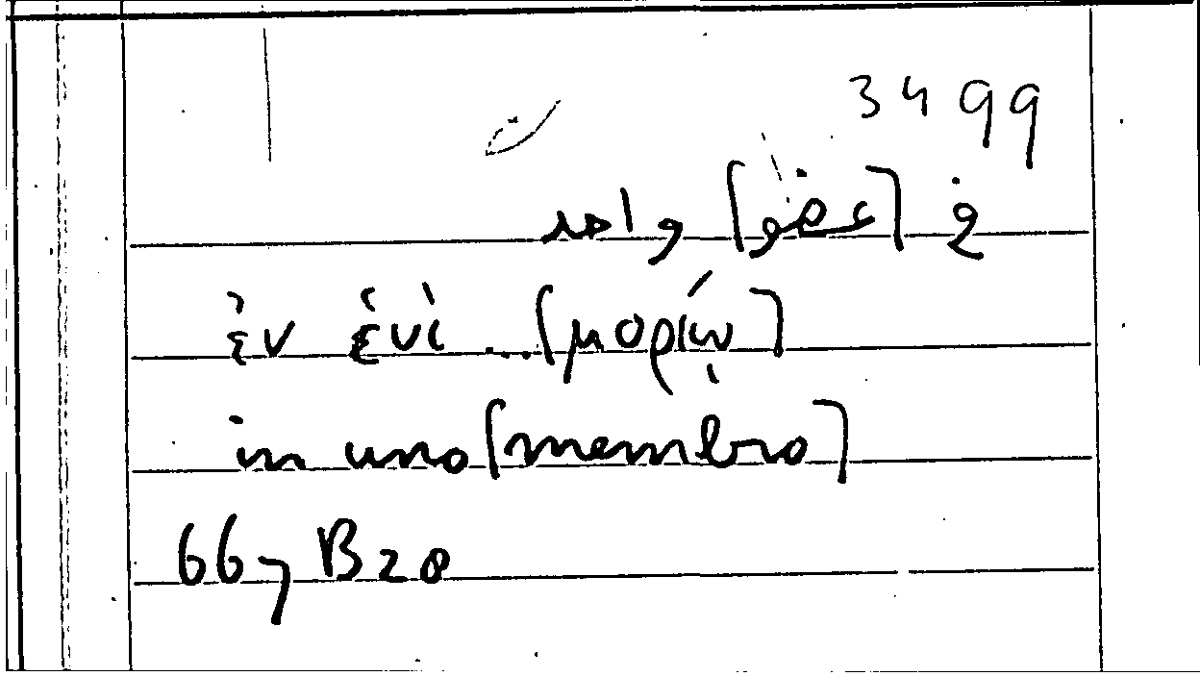 3499
في [عضو] واحد
ἐν ἑνὶ ... [μορίῳ]
in uno [membro]
667 B 28